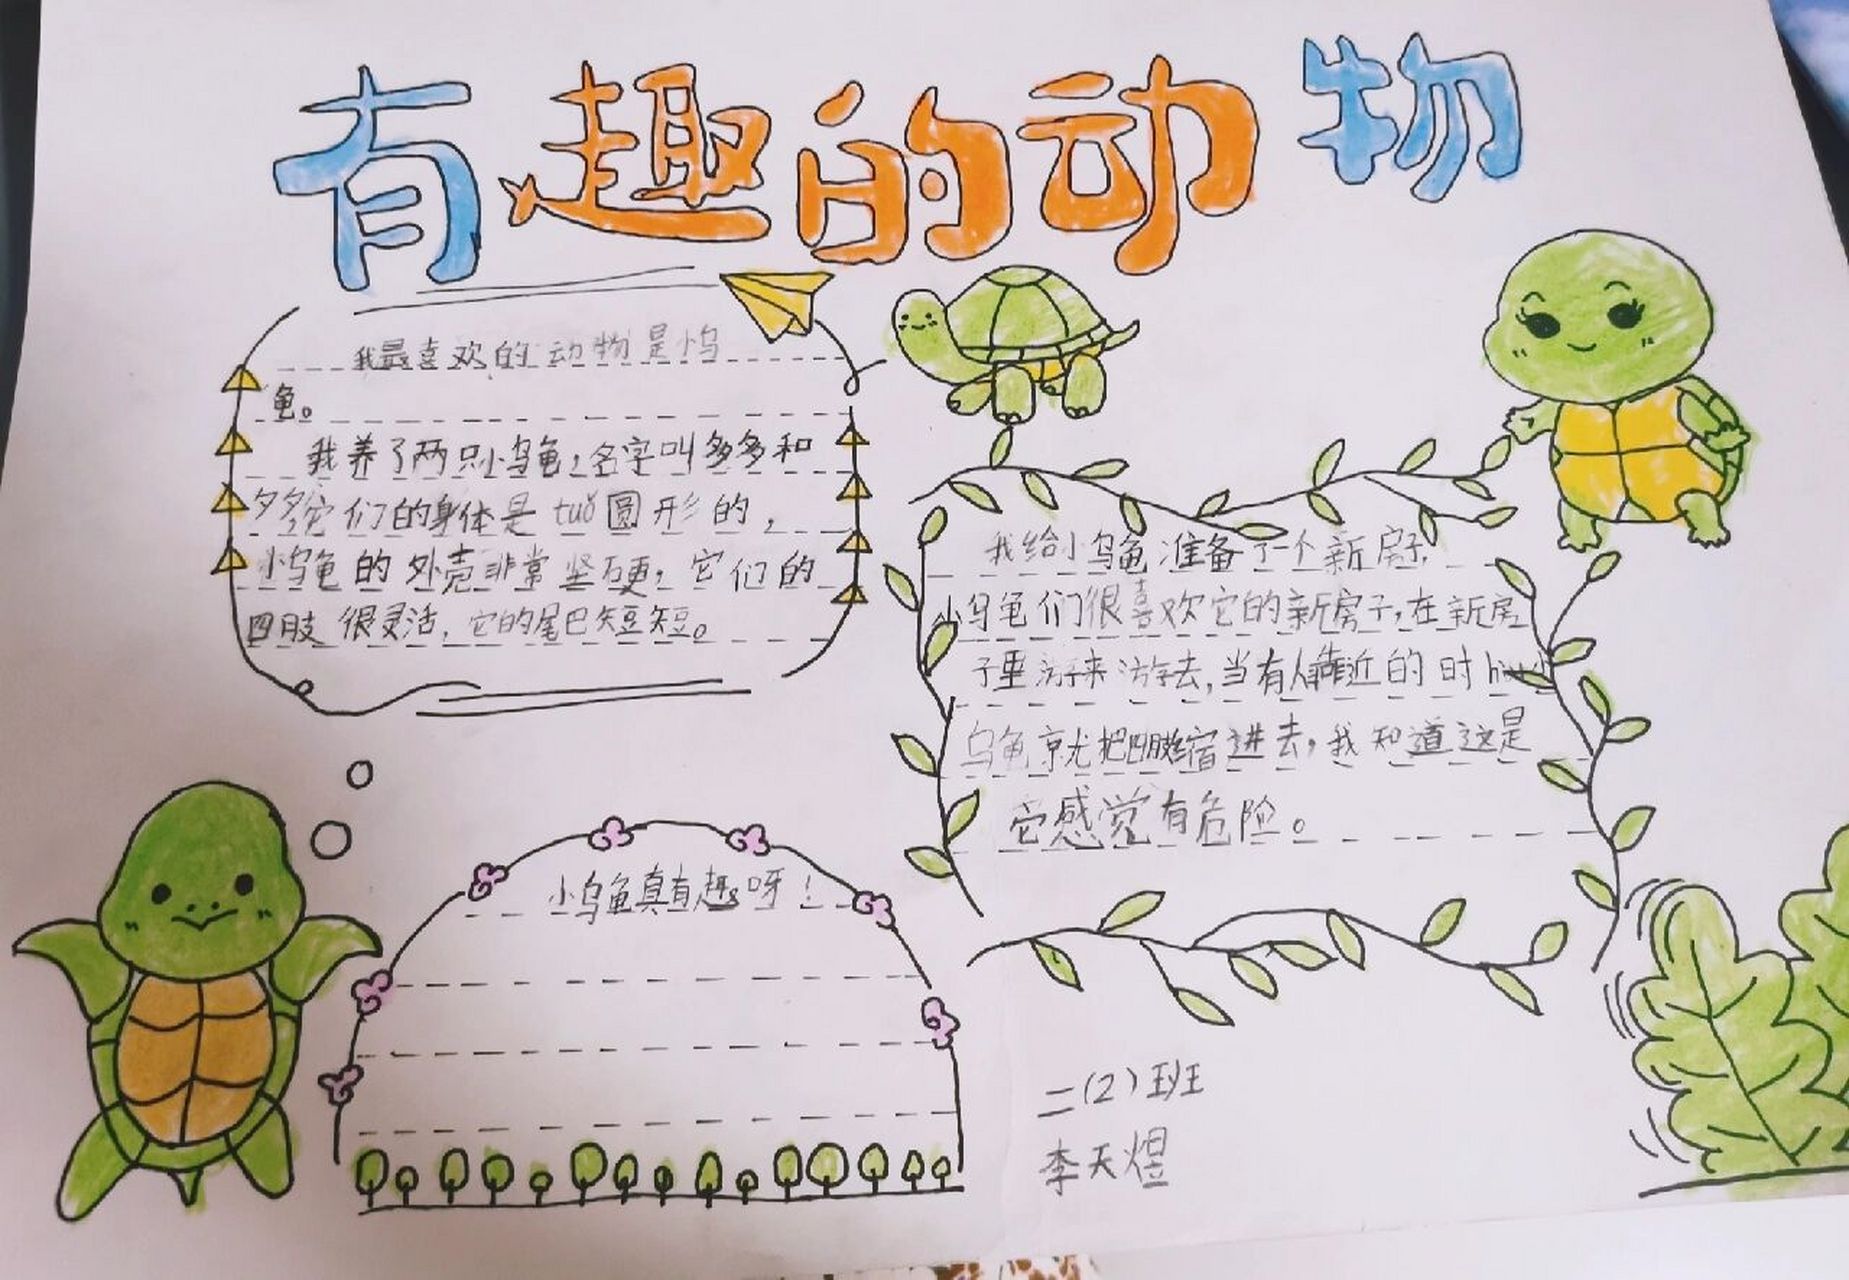 有趣的动物
我最喜欢的动物是小乌
龟。
我养了两只小乌龟,名字叫多多和
多多,它们的身体是tuǒ圆形的,
小乌龟的外壳非常坚硬,它们的
四肢很灵活,它的尾巴短短。
我给小乌龟准备了一个新房子,
小乌龟们很喜欢它的新房子,在新房
子里游来游去,当有人靠近的时h小
乌龟就把四肢缩进去,我知道这是
它感觉有危险。
小乌龟真有趣呀!
二(2)班
李天煜